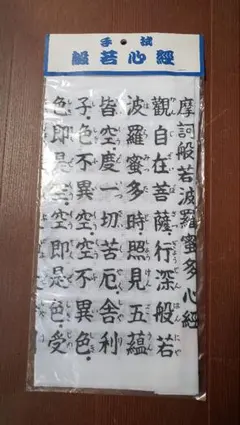 手拭
般若心經
摩訶般若波羅蜜多心經
觀自在菩薩行深般若
波羅蜜多時照見五蘊
皆空度一切苦厄舎利
子色不異空空不異色
色即是空空即是色受